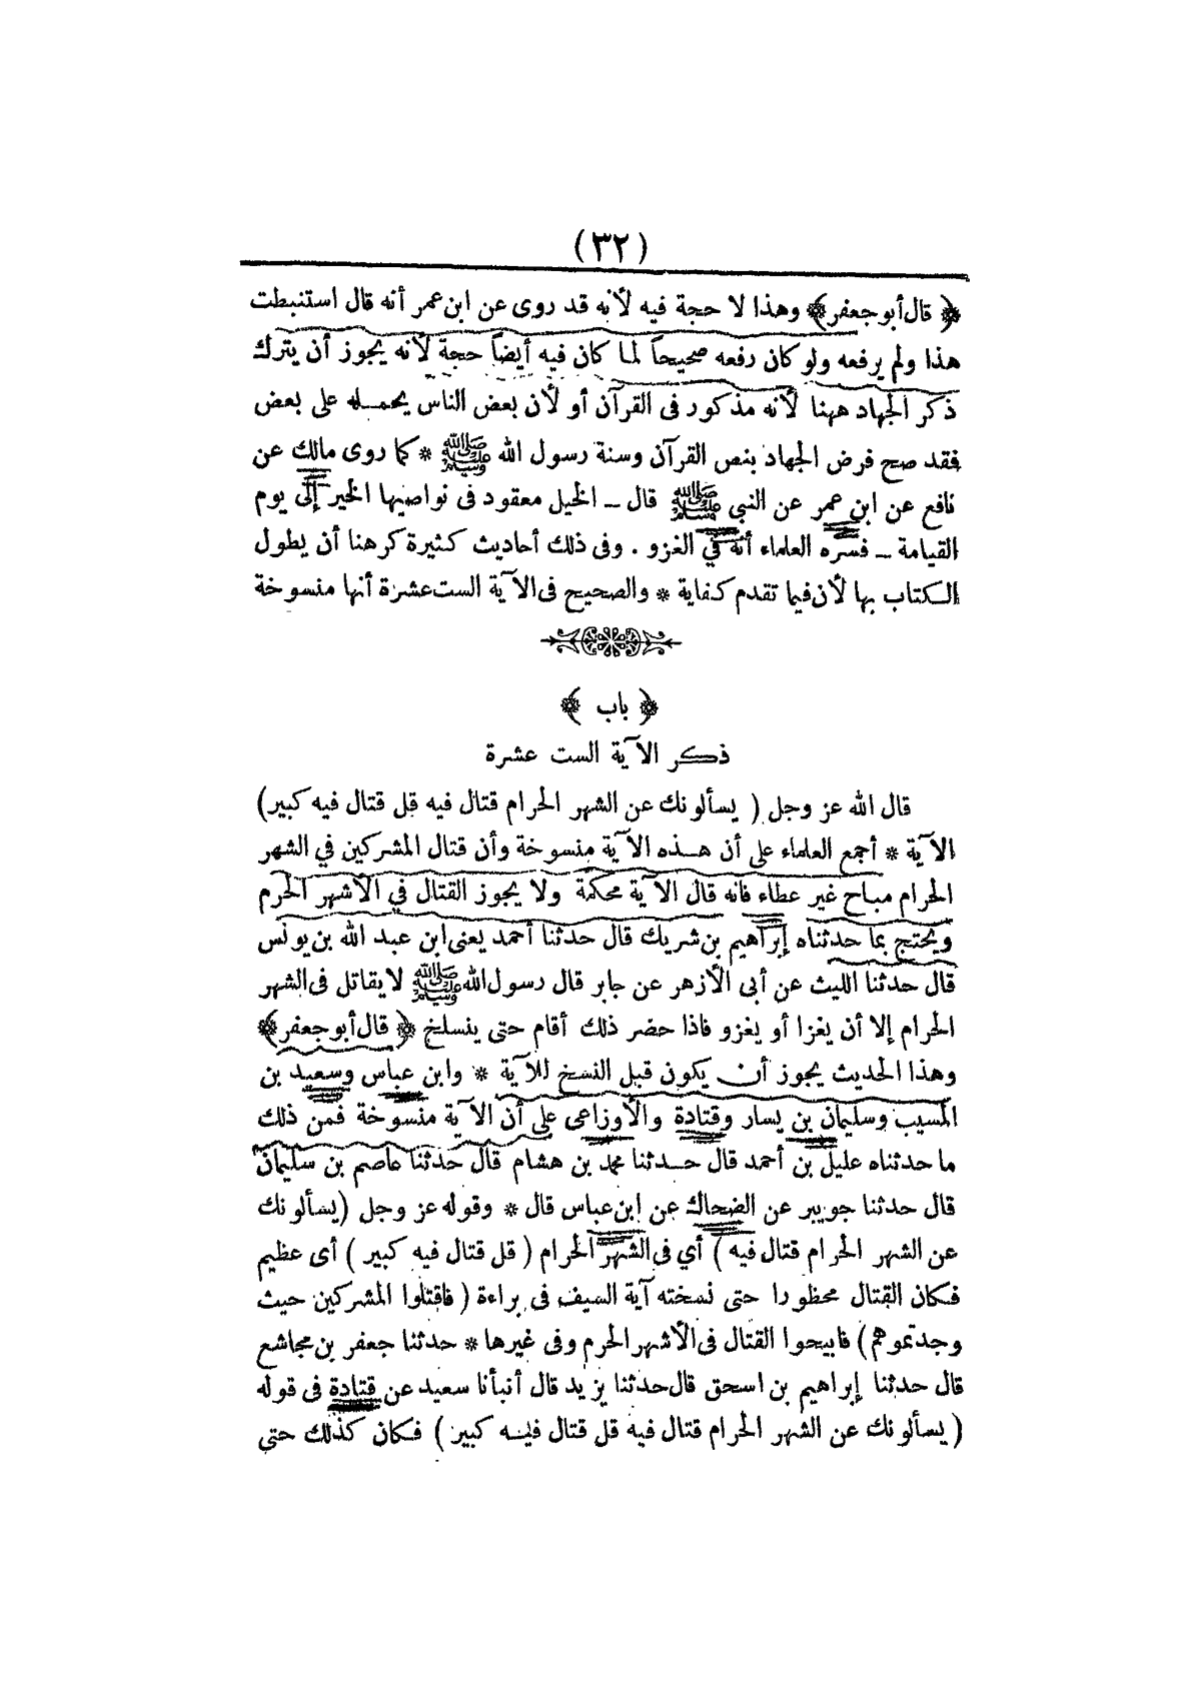 (٣٢)
﴿ قال أبو جعفر ﴾ وهذا لا حجة فيه لأنه قد روى عن ابن عمر أنه قال استنبطت
هذا ولم يرفعه ولو كان رفعه صحيحاً لما كان فيه أيضاً حجة لأنه يجوز أن يترك
ذكر الجهاد ههنا لأنه مذكور فى القرآن أو لأن بعض الناس يحمله على بعض
فقد صح فرض الجهاد بنص القرآن وسنة رسول الله ﷺ * كما روى مالك عن
نافع عن ابن عمر عن النبي ﷺ قال ــ الخيل معقود فى نواصيها الخير إلى يوم
القيامة ــ فسره العلماء أنه في الغزو . وفى ذلك أحاديث كثيرة كرهنا أن يطول
الكتاب بها لأن فيما تقدم كفاية * والصحيح فى الآية الست عشرة أنها منسوخة
﴿ باب ﴾
ذكر الآية الست عشرة
قال الله عز وجل ( يسألونك عن الشهر الحرام قتال فيه قل قتال فيه كبير )
الآية * أجمع العلماء على أن هذه الآية منسوخة وأن قتال المشركين في الشهر
الحرام مباح غير عطاء فانه قال الآية محكمة ولا يجوز القتال في الأشهر الحرم
ويحتج بما حدثناه إبراهيم بن شريك قال حدثنا أحمد يعنى ابن عبد الله بن يونس
قال حدثنا الليث عن أبى الأزهر عن جابر قال رسول الله ﷺ لا يقاتل فى الشهر
الحرام إلا أن يغزا أو يغزو فاذا حضر ذلك أقام حتى ينسلخ ﴿ قال أبو جعفر ﴾
وهذا الحديث يجوز أن يكون قبل النسخ للآية * وابن عباس وسعيد بن
المسيب وسليمان بن يسار وقتادة والأوزاعى على أن الآية منسوخة فمن ذلك
ما حدثناه عليل بن أحمد قال حدثنا محمد بن هشام قال حدثنا عاصم بن سليمان
قال حدثنا جويبر عن الضحاك عن ابن عباس قال * وقوله عز وجل ( يسألونك
عن الشهر الحرام قتال فيه ) أي فى الشهر الحرام ( قل قتال فيه كبير ) أى عظيم
فكان القتال محظورا حتى نسخته آية السيف فى براءة ( فاقتلوا المشركين حيث
وجدتموهم ) فابيحوا القتال فى الأشهر الحرم وفى غيرها * حدثنا جعفر بن مجاشع
قال حدثنا إبراهيم بن اسحق قال حدثنا يزيد قال أنبأنا سعيد عن قتادة فى قوله
( يسألونك عن الشهر الحرام قتال فيه قل قتال فيه كبير ) فكان كذلك حتى